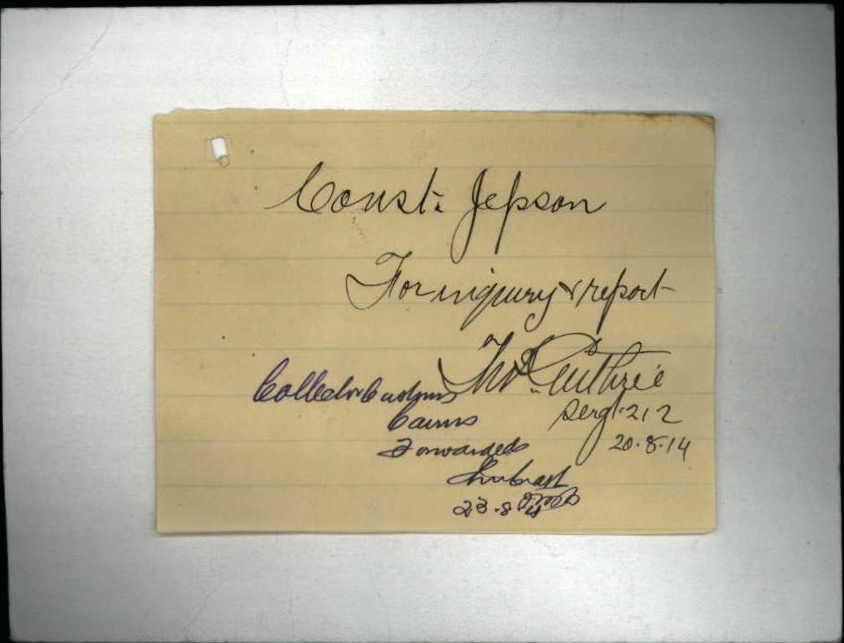 Const: Jepson
For inquiry & report
Thos Guthrie
Sergt. 212
20.8.14
Collector Customs
Cairns
Forwarded
23.8.14